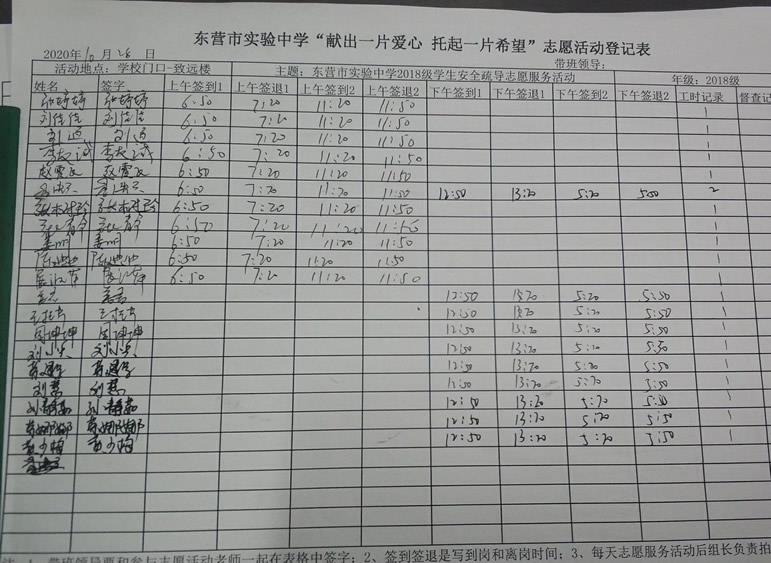 东营市实验中学“献出一片爱心 托起一片希望”志愿活动登记表
2020年10月28日 带班领导:
活动地点: 学校门口-致远楼 主题: 东营市实验中学2018级学生安全疏导志愿服务活动 年级: 2018级
姓名 签字 上午签到1 上午签退1 上午签到2 上午签退2 下午签到1 下午签退1 下午签到2 下午签退2 工时记录 督查记
6:50 7:20 11:20 11:50 1
刘佳佳 刘佳佳 6:50 7:20 11:20 11:50 1
6:50 7:20 11:20 11:50 1
李友诚 李友诚 6:50 7:20 11:20 11:50 1
赵霞 赵霞 6:50 7:20 11:20 11:50 1
6:50 7:20 11:20 11:50 12:50 13:20 5:20 5:50 2
6:50 7:20 11:20 11:50 1
6:50 7:20 11:20 11:50 1
姜明 姜明 6:50 7:20 11:20 11:50 1
6:50 7:20 11:20 11:50 1
6:50 7:20 11:20 11:50 1
12:50 13:20 5:20 5:50 1
12:50 13:20 5:20 5:50 1
周坤坤 周坤坤 12:50 13:20 5:20 5:50 1
刘小 刘小 12:50 13:20 5:20 5:50 1
12:50 13:20 5:20 5:50 1
刘慧 刘慧 12:50 13:20 5:20 5:50 1
刘静 刘静 12:50 13:20 5:20 5:50 1
娜娜 娜娜 12:50 13:20 5:20 5:50 1
黄少梅 黄少梅 12:50 13:20 5:20 5:50 1
1、带班领导要和参与志愿活动老师一起在表格中签字; 2、签到签退是写到岗和离岗时间; 3、每天志愿服务活动后组长负责拍